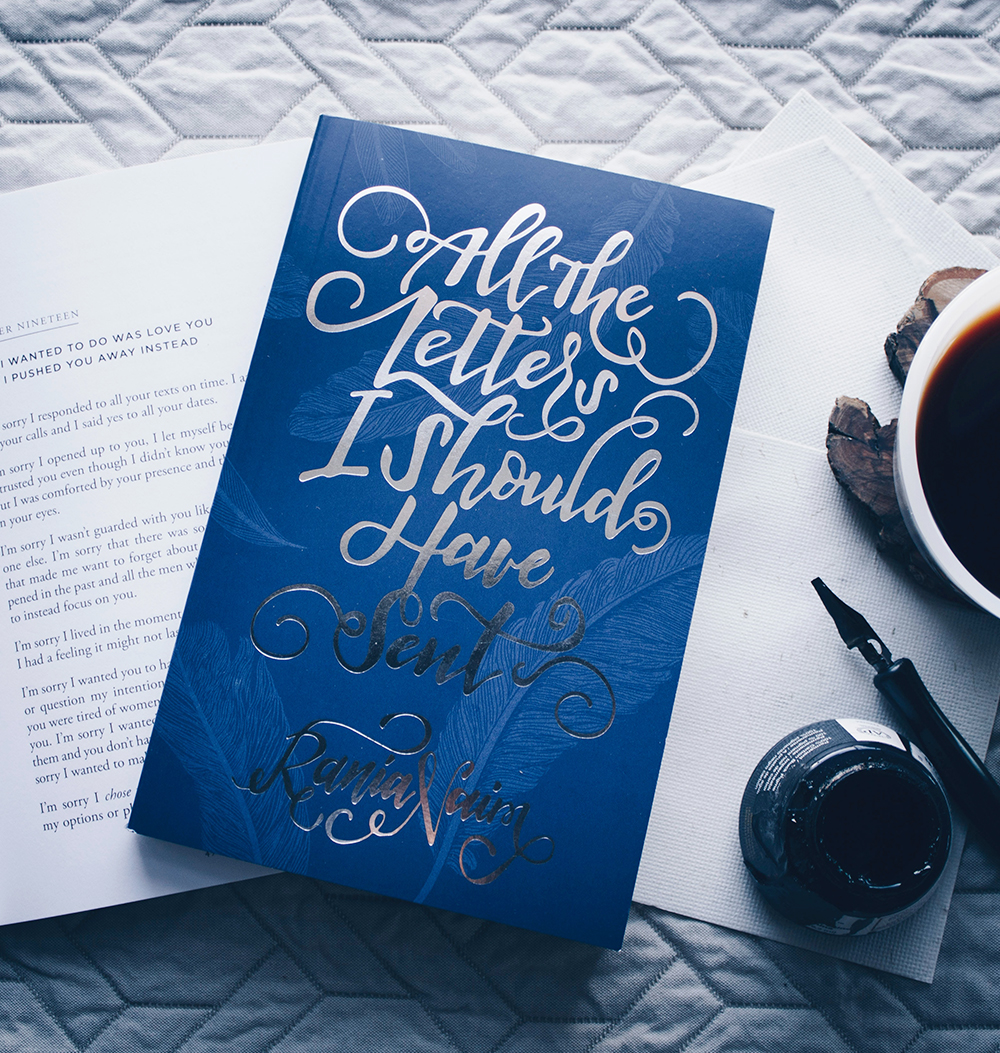 All The
Letters
I Should
Have
Sent
Rania Naim
ER NINETEEN
I WANTED TO DO WAS LOVE YOU
I PUSHED YOU AWAY INSTEAD
sorry I responded to all your texts on time. I a
your calls and I said yes to all your dates.
sorry I opened up to you, I let myself be
trusted you even though I didn't know you
ut I was comforted by your presence and th
n your eyes.
I'm sorry I wasn't guarded with you lik
one else. I'm sorry that there was so
that made me want to forget about
pened in the past and all the men w
to instead focus on you.
I'm sorry I lived in the moment
I had a feeling it might not las
I'm sorry I wanted you to ha
or question my intention
you were tired of women
you. I'm sorry I wanted
them and you don't ha
sorry I wanted to ma
I'm sorry I chose
my options or pl